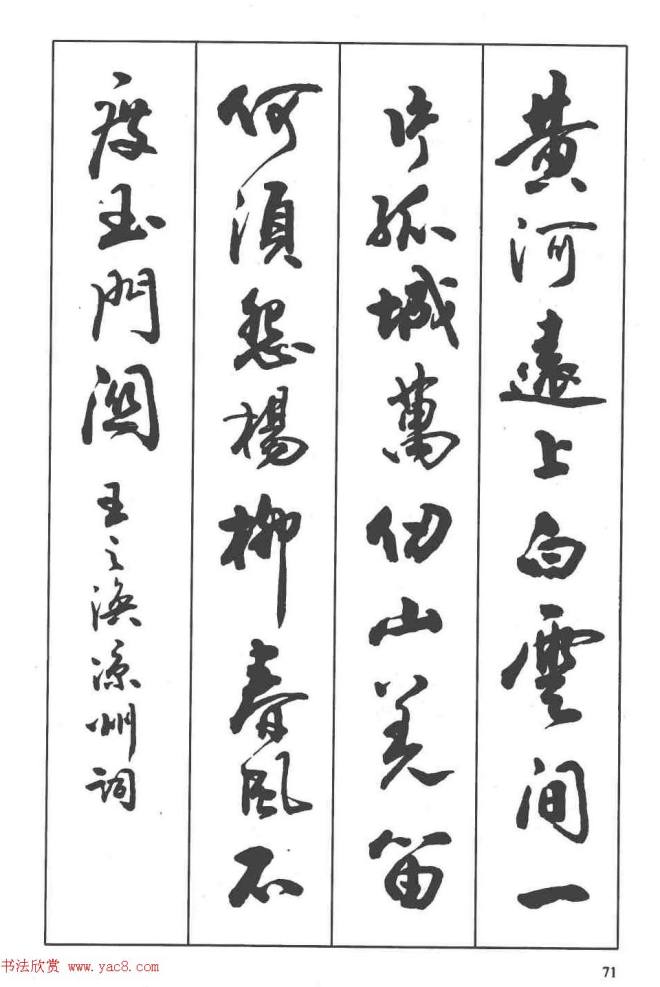 黄河遠上白雲间一
片孤城萬仞山羌笛
何須怨楊柳春風不
度玉門関
王之渙涼州詞
书法欣赏 www.yac8.com
71